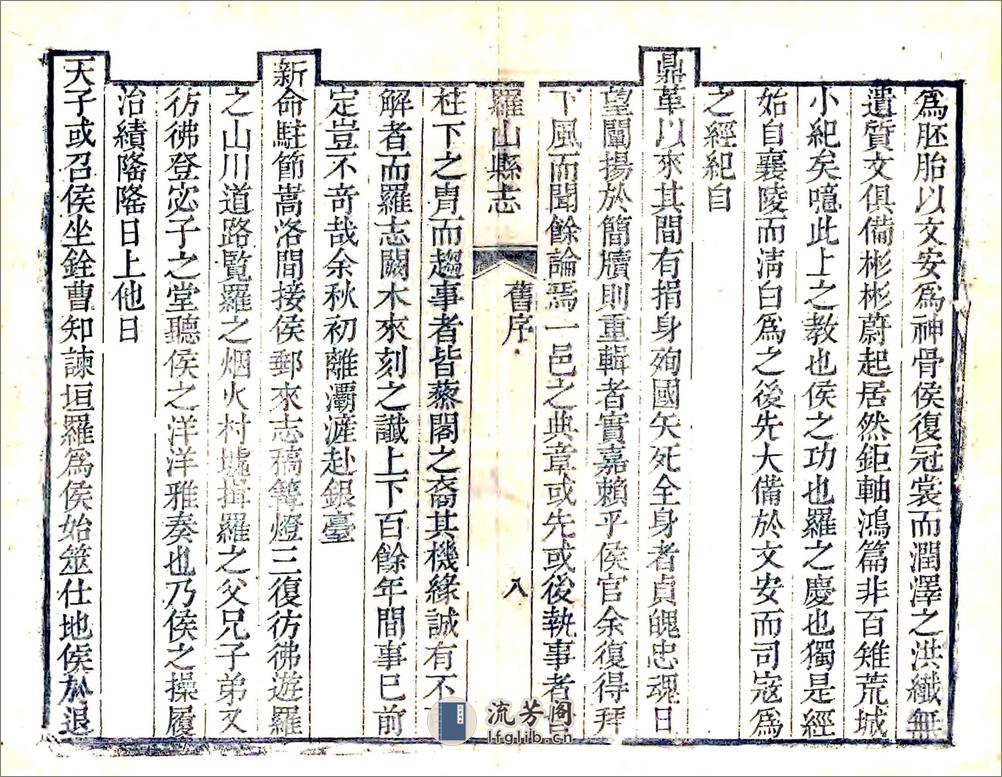 為胚胎以文安為神骨侯復冠裳而潤澤之洪纖無
遺質文俱備彬彬蔚起居然鉅軸鴻篇非百雉荒城
小紀矣噫此上之教也侯之功也羅之慶也獨是經
始自襄陵而淸白為之後先大備於文安而司宼為
之經紀自
鼎革以來其間有捐身殉國矢死全身者貞魄忠魂日
望闡揚於簡牘則重輯者實嘉賴乎侯官余復得拜
下風而聞餘論焉一邑之典章或先或後執事者
羅山縣志
舊序
八
柱下之胄而趨事者皆蔾閣之裔其機緣誠有不
解者而羅志關木來刻之讖上下百餘年間事已前
定豈不竒哉余秋初離灞滻赴銀臺
新命駐節嵩洛間接侯郵來志稿篝燈三復彷彿遊羅
之山川道路覽羅之烟火村墟揖羅之父兄子弟又
彷彿登宓子之堂聽侯之洋洋雅奏也乃侯之操履
治績隆隆日上他日
天子或召侯坐銓曹知諫垣羅為侯始筮仕地侯於退
流芳阁
lfglib.cn